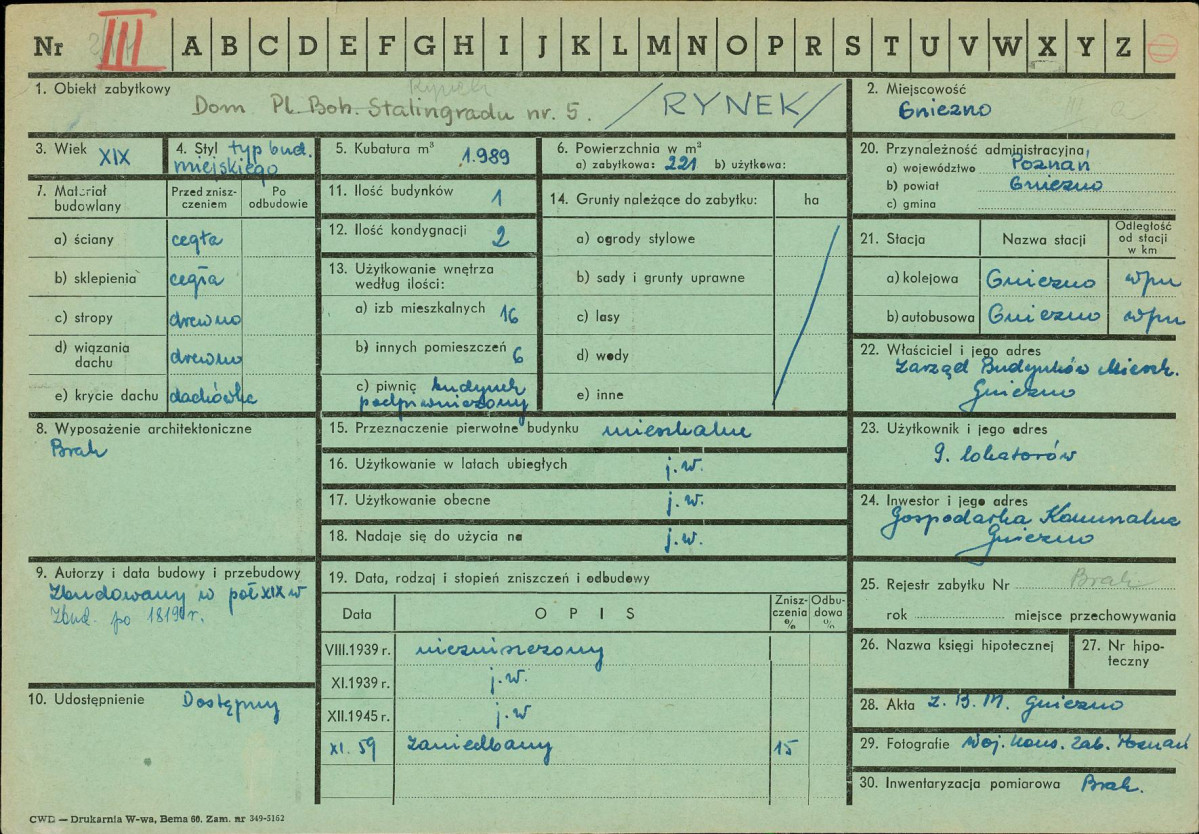 Nr III A B C D E F G H I J K L M N O P R S T U V W X Y Z
1. Obiekt zabytkowy
Rynek
Dom Pl. Boh. Stalingradu nr. 5. /RYNEK/
2. Miejscowość
Gniezno
3. Wiek XIX
4. Styl typ bud.
miejskiego
5. Kubatura m³ 1.989
6. Powierzchnia w m²
a) zabytkowa: 221 b) użytkowa:
7. Materiał
budowlany
Przed znisz-
czeniem
Po
odbudowie
a) ściany cegła
b) sklepienia cegła
c) stropy drewno
d) wiązania
dachu drewno
e) krycie dachu dachówka
8. Wyposażenie architektoniczne
Brak
9. Autorzy i data budowy i przebudowy
Zbudowany w poł XIX w
Zbud. po 1819 r.
10. Udostępnienie Dostępny
11. Ilość budynków 1
12. Ilość kondygnacji 2
13. Użytkowanie wnętrza
według ilości:
a) izb mieszkalnych 16
b) innych pomieszczeń 6
c) piwnic budynek
podpiwniczony
14. Grunty należące do zabytku: ha
a) ogrody stylowe
b) sady i grunty uprawne
c) lasy
d) wody
e) inne
15. Przeznaczenie pierwotne budynku mieszkalne
16. Użytkowanie w latach ubiegłych j.w.
17. Użytkowanie obecne j.w.
18. Nadaje się do użycia na j.w.
19. Data, rodzaj i stopień zniszczeń i odbudowy
Data OPIS
Znisz-
czenia
%
Odbu-
dowa
%
VIII.1939 r. niezniszczony
XI.1939 r. j.w.
XII.1945 r. j.w
XI. 59 zaniedbany 15
20. Przynależność administracyjna
a) województwo Poznań
b) powiat Gniezno
c) gmina
21. Stacja Nazwa stacji
Odległość
od stacji
w km
a) kolejowa Gniezno
b) autobusowa Gniezno
22. Właściciel i jego adres
Zarząd Budynków Mieszk.
Gniezno
23. Użytkownik i jego adres
9. lokatorów
24. Inwestor i jego adres
Gospodarka Komunalna
Gniezno
25. Rejestr zabytku Nr Brak
rok miejsce przechowywania
26. Nazwa księgi hipotecznej
27. Nr hipo-
teczny
28. Akta Z. B. M. Gniezno
29. Fotografie Woj. Kons. Zab. Poznań
30. Inwentaryzacja pomiarowa Brak.
CWD — Drukarnia W-wa, Bema 60. Zam. nr 349-5162